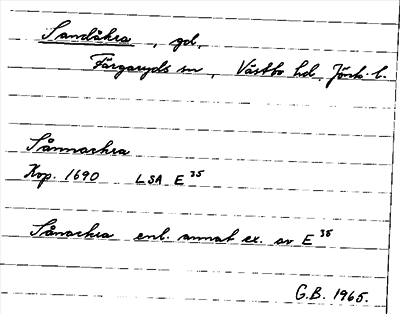 Sandåkra, gd,
Färgaryds sn, Västbo hd, Jönk. l.
Sånnackra
Kop. 1690 LSA E 35
Sånackra enl. annat ex. av E 35
G.B. 1965.